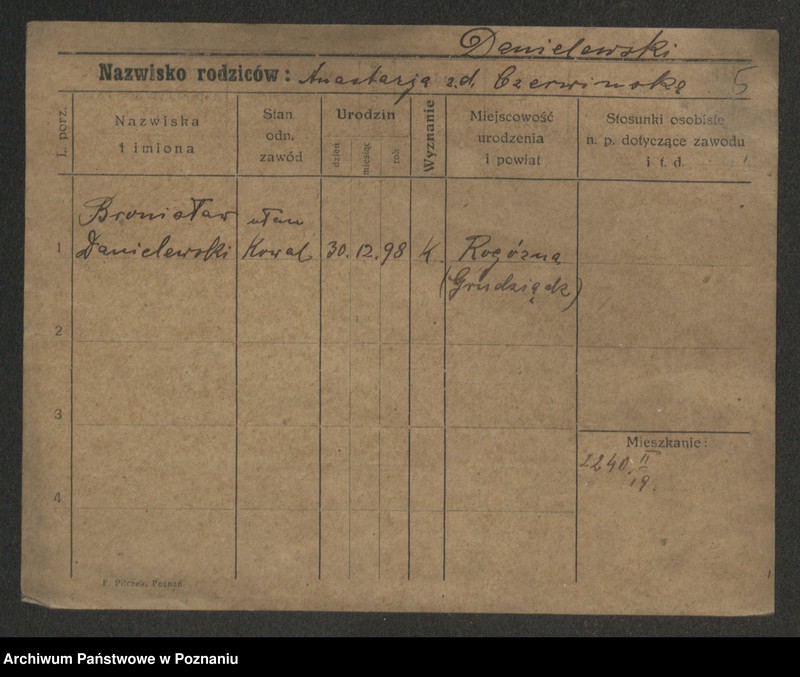 Danielewski
Nazwisko rodziców: Anastazją z.d. Czerwińską 5
L. porz.
Nazwiska
i imiona
Stan
odn.
zawód
Urodzin
dzień
miesiąc
rok
Wyznanie
Miejscowość
urodzenia
i powiat
Stosunki osobiste
n. p. dotyczące zawodu
i t. d.
Bronisław ułan
1 Danielewski Kowal 30. 12. 98 K. Rogóźna
(Grudziądz)
2
3
Mieszkanie:
2240 II
19.
4
F. Pilczek, Poznań
Archiwum Państwowe w Poznaniu